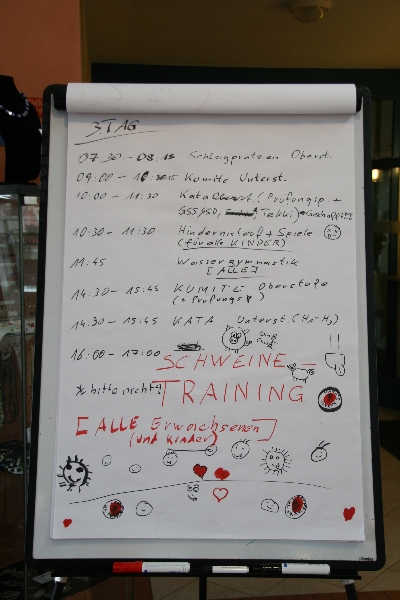 3. TAG
07:30 – 08:15 Schlagpratzen Oberst.
09:00 – 10:15 Kumite Unterst.
10:00 – 11:30 Kata Oberst. (Prüfungsp. +
GSS, SD, Tekki)
10:30 – 11:30 Hindernislauf + Spiele
(für alle KINDER)
11:45 Wassergymnastik
[ALLE]
14:30 – 15:45 KUMITE Oberstufe
(+ Prüfungsp.)
14:30 – 15:45 KATA Unterst. (H1–H3)
16:00 – 17:00 SCHWEINE –
* bitte nicht! TRAINING
[ALLE Erwachsenen]
(und Kinder)